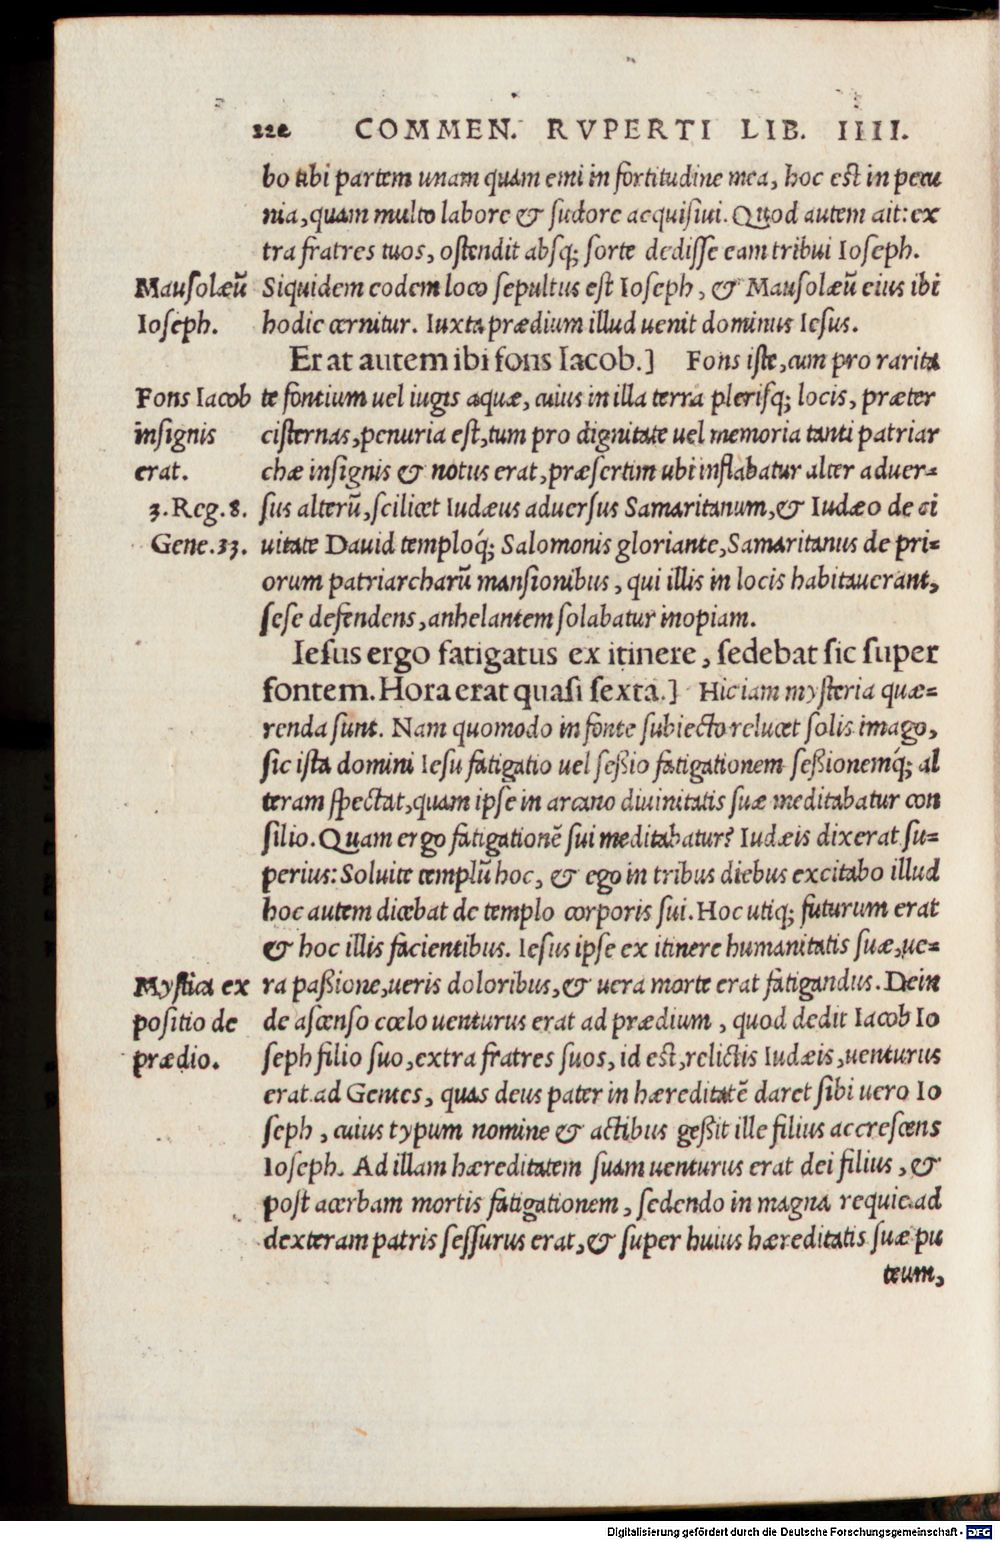 222 COMMEN. RVPERTI LIB. IIII.
bo tibi partem unam quam emi in fortitudine mea, hoc est in pecu
nia, quam multo labore & sudore acquisiui. Quod autem ait: ex
tra fratres tuos, ostendit absq; sorte dedisse eam tribui Ioseph.
Mausolæũ
Ioseph.
Siquidem eodem loco sepultus est Ioseph, & Mausolæũ eius ibi
hodie cernitur. Iuxta prædium illud uenit dominus Iesus.
Erat autem ibi fons Iacob.] Fons iste, cum pro rarita
Fons Iacob
insignis
erat.
3. Reg. 8.
Gene. 33.
te fontium uel iugis aquæ, cuius in illa terra plerisq; locis, præter
cisternas, penuria est, tum pro dignitate uel memoria tanti patriar
chæ insignis & notus erat, præsertim ubi inflabatur alter aduer=
sus alterũ, scilicet Iudæus aduersus Samaritanum, & Iudæo de ci
uitate Dauid temploq́; Salomonis gloriante, Samaritanus de pri=
orum patriarcharũ mansionibus, qui illis in locis habitauerant,
sese defendens, anhelantem solabatur inopiam.
Iesus ergo fatigatus ex itinere, sedebat sic super
fontem. Hora erat quasi sexta.] Hic iam mysteria quæ=
renda sunt. Nam quomodo in fonte subiecto relucet solis imago,
sic ista domini Iesu fatigatio uel seßio fatigationem seßionemq́; al
teram spectat, quam ipse in arcano diuinitatis suæ meditabatur con
silio. Quam ergo fatigationẽ sui meditabatur? Iudæis dixerat su=
perius: Soluite templũ hoc, & ego in tribus diebus excitabo illud
hoc autem dicebat de templo corporis sui. Hoc utiq; futurum erat
& hoc illis facientibus. Iesus ipse ex itinere humanitatis suæ, ue=
Mystica ex
positio de
prædio.
ra paßione, ueris doloribus, & uera morte erat fatigandus. Dein
de ascenso cœlo uenturus erat ad prædium, quod dedit Iacob Io
seph filio suo, extra fratres suos, id est, relictis Iudæis, uenturus
erat ad Gentes, quas deus pater in hæreditatẽ daret sibi uero Io
seph, cuius typum nomine & actibus geßit ille filius accrescens
Ioseph. Ad illam hæreditatem suam uenturus erat dei filius, &
post acerbam mortis fatigationem, sedendo in magna requie ad
dexteram patris sessurus erat, & super huius hæreditatis suæ pu
teum,
Digitalisierung gefördert durch die Deutsche Forschungsgemeinschaft - DFG